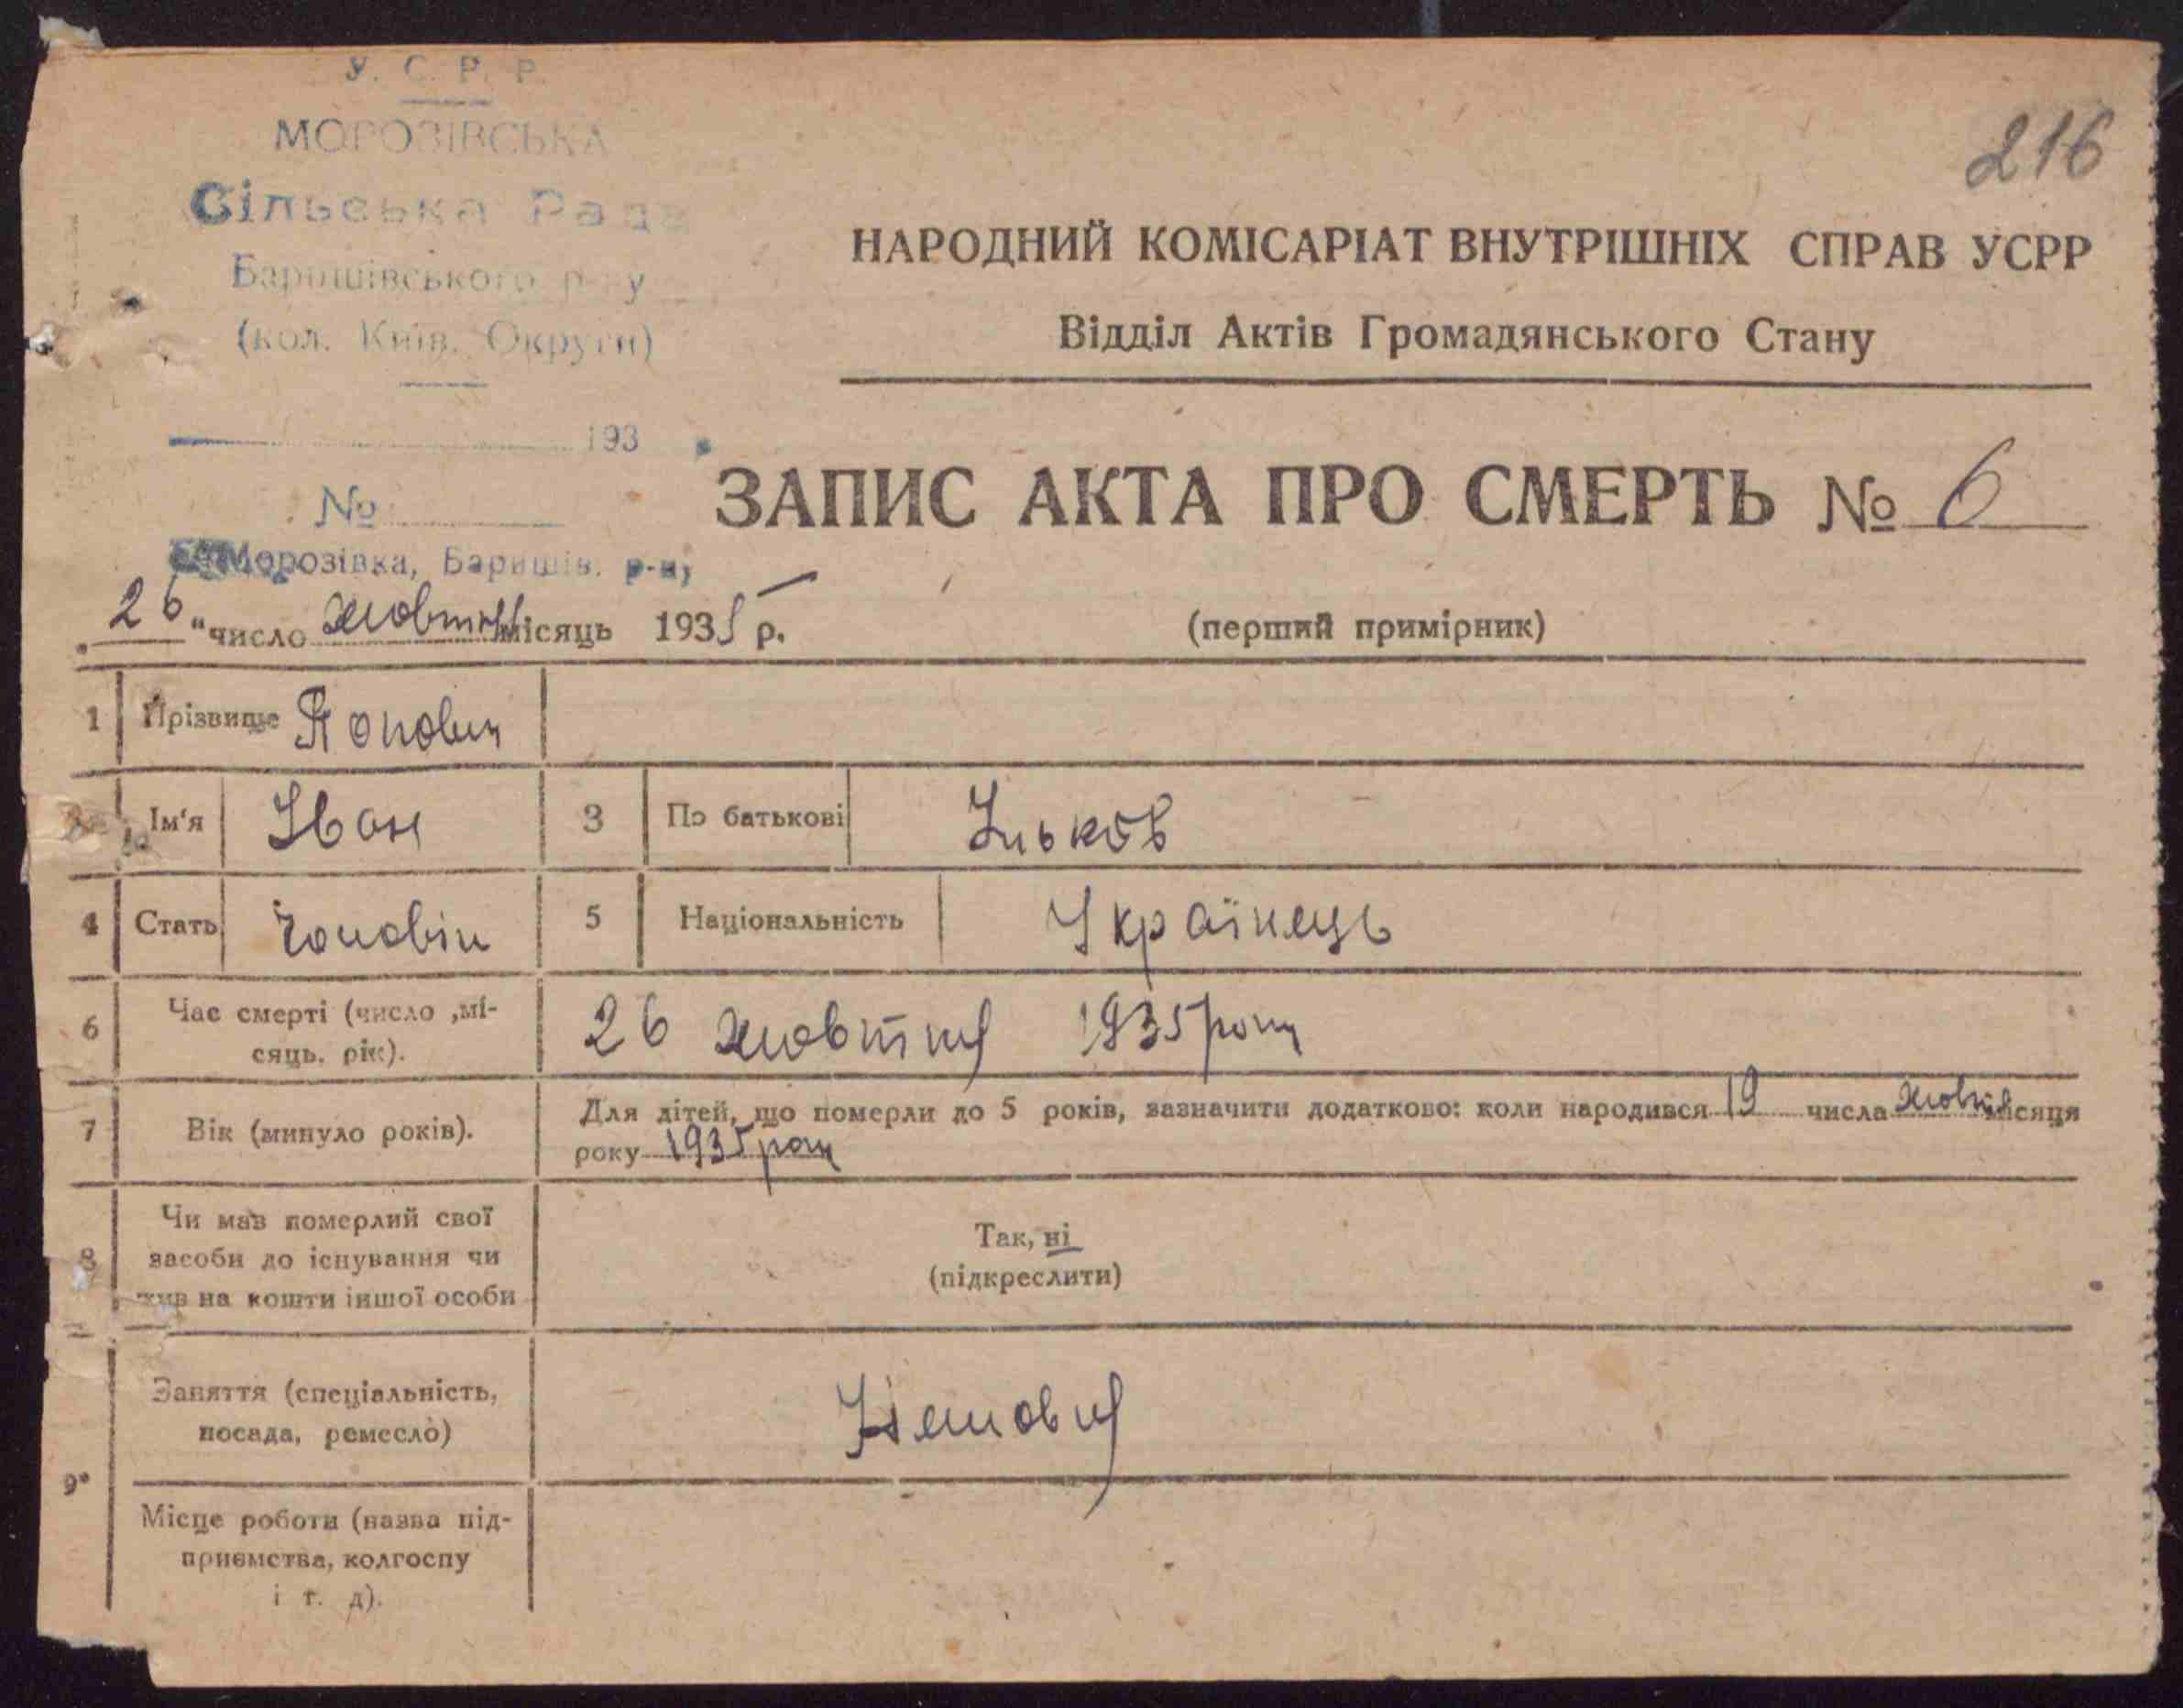 У. С. Р. Р.
МОРОЗІВСЬКА
Сільська Рада
Баришівського р-ну
(кол. Київ. Округи)
193
№
Морозівка, Баришів. р-н,
216
НАРОДНИЙ КОМІСАРІАТ ВНУТРІШНІХ СПРАВ УСРР
Відділ Актів Громадянського Стану
ЗАПИС АКТА ПРО СМЕРТЬ № 6
26 "число жовтня місяць 1935 р.
(перший примірник)
1 Прізвище Попович
Ім'я Іван 3 По батькові Ільков
4 Стать Чоловік 5 Національність Українець
6 Час смерті (число ,мі-
сяць. рік).
26 жовтня 1935 року
7 Вік (минуло років).
Для дітей, що померли до 5 років, зазначити додатково: коли народився 19 числа жовтня місяця
року 1935 року
8 Чи мав померлий свої
засоби до існування чи
жив на кошти іншої особи
Так, ні
(підкреслити)
9 Заняття (спеціальність,
посада, ремесло)
Немовля
Місце роботи (назва під-
приємства, колгоспу
і т. д).